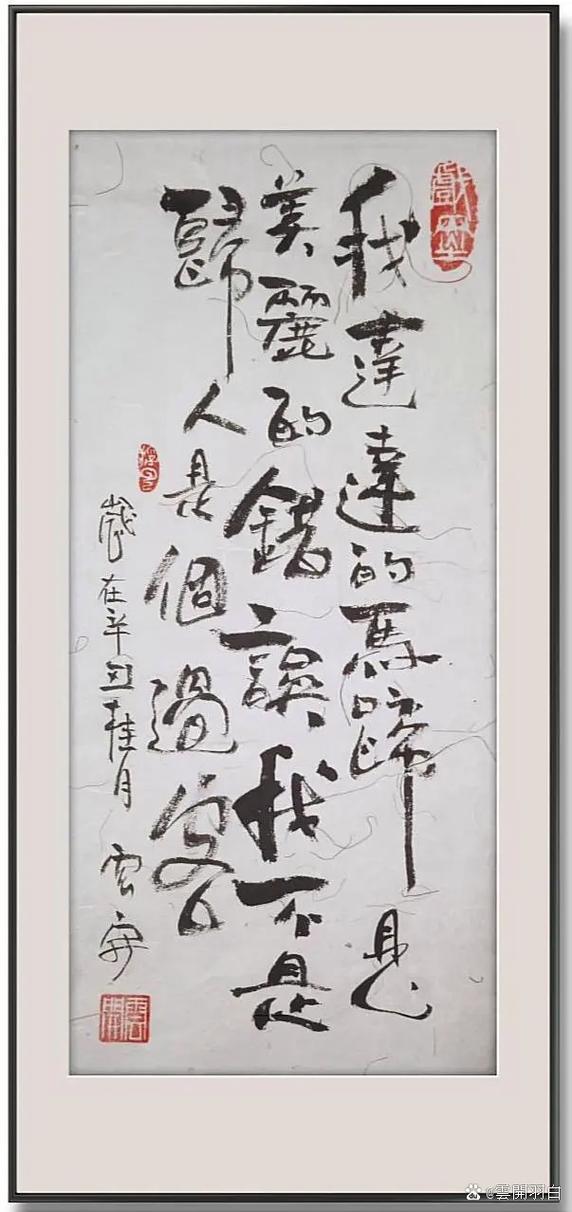 戲墨
我達達的馬蹄是
美麗的錯誤我不是
歸人是個過客
歲在辛丑桂月 雲開
雲開
@雲開羽白